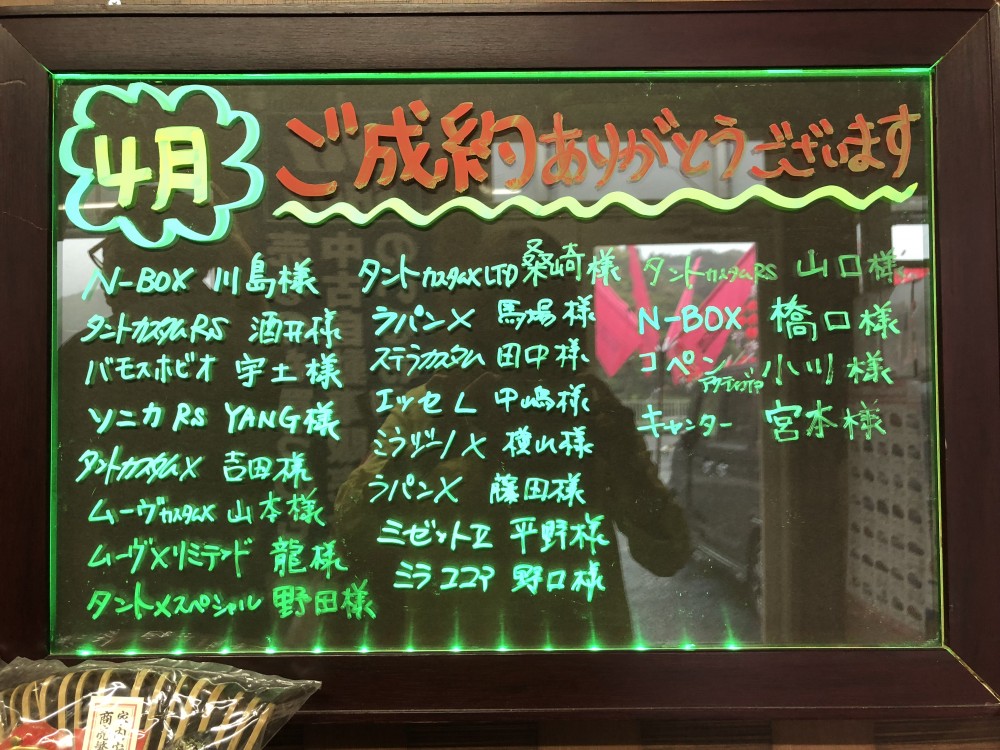 4月
ご成約ありがとうございます
N-BOX 川島様
タントカスタムRS 酒井様
バモスホビオ 宇土様
ソニカRS YANG様
タントカスタムX 吉田様
ムーヴカスタムX 山本様
ムーヴXリミテッド 龍様
タントXスペシャル 野田様
タントカスタムX LTD 桑崎様
ラパンX 馬場様
ステラカスタム 田中様
エッセL 中嶋様
ミラジーノX 横山様
ラパンX 藤田様
ミゼットII 平野様
ミラココア 野口様
タントカスタムRS 山口様
N-BOX 橋口様
コペン
アクティブトップ 小川様
キャンター 宮本様